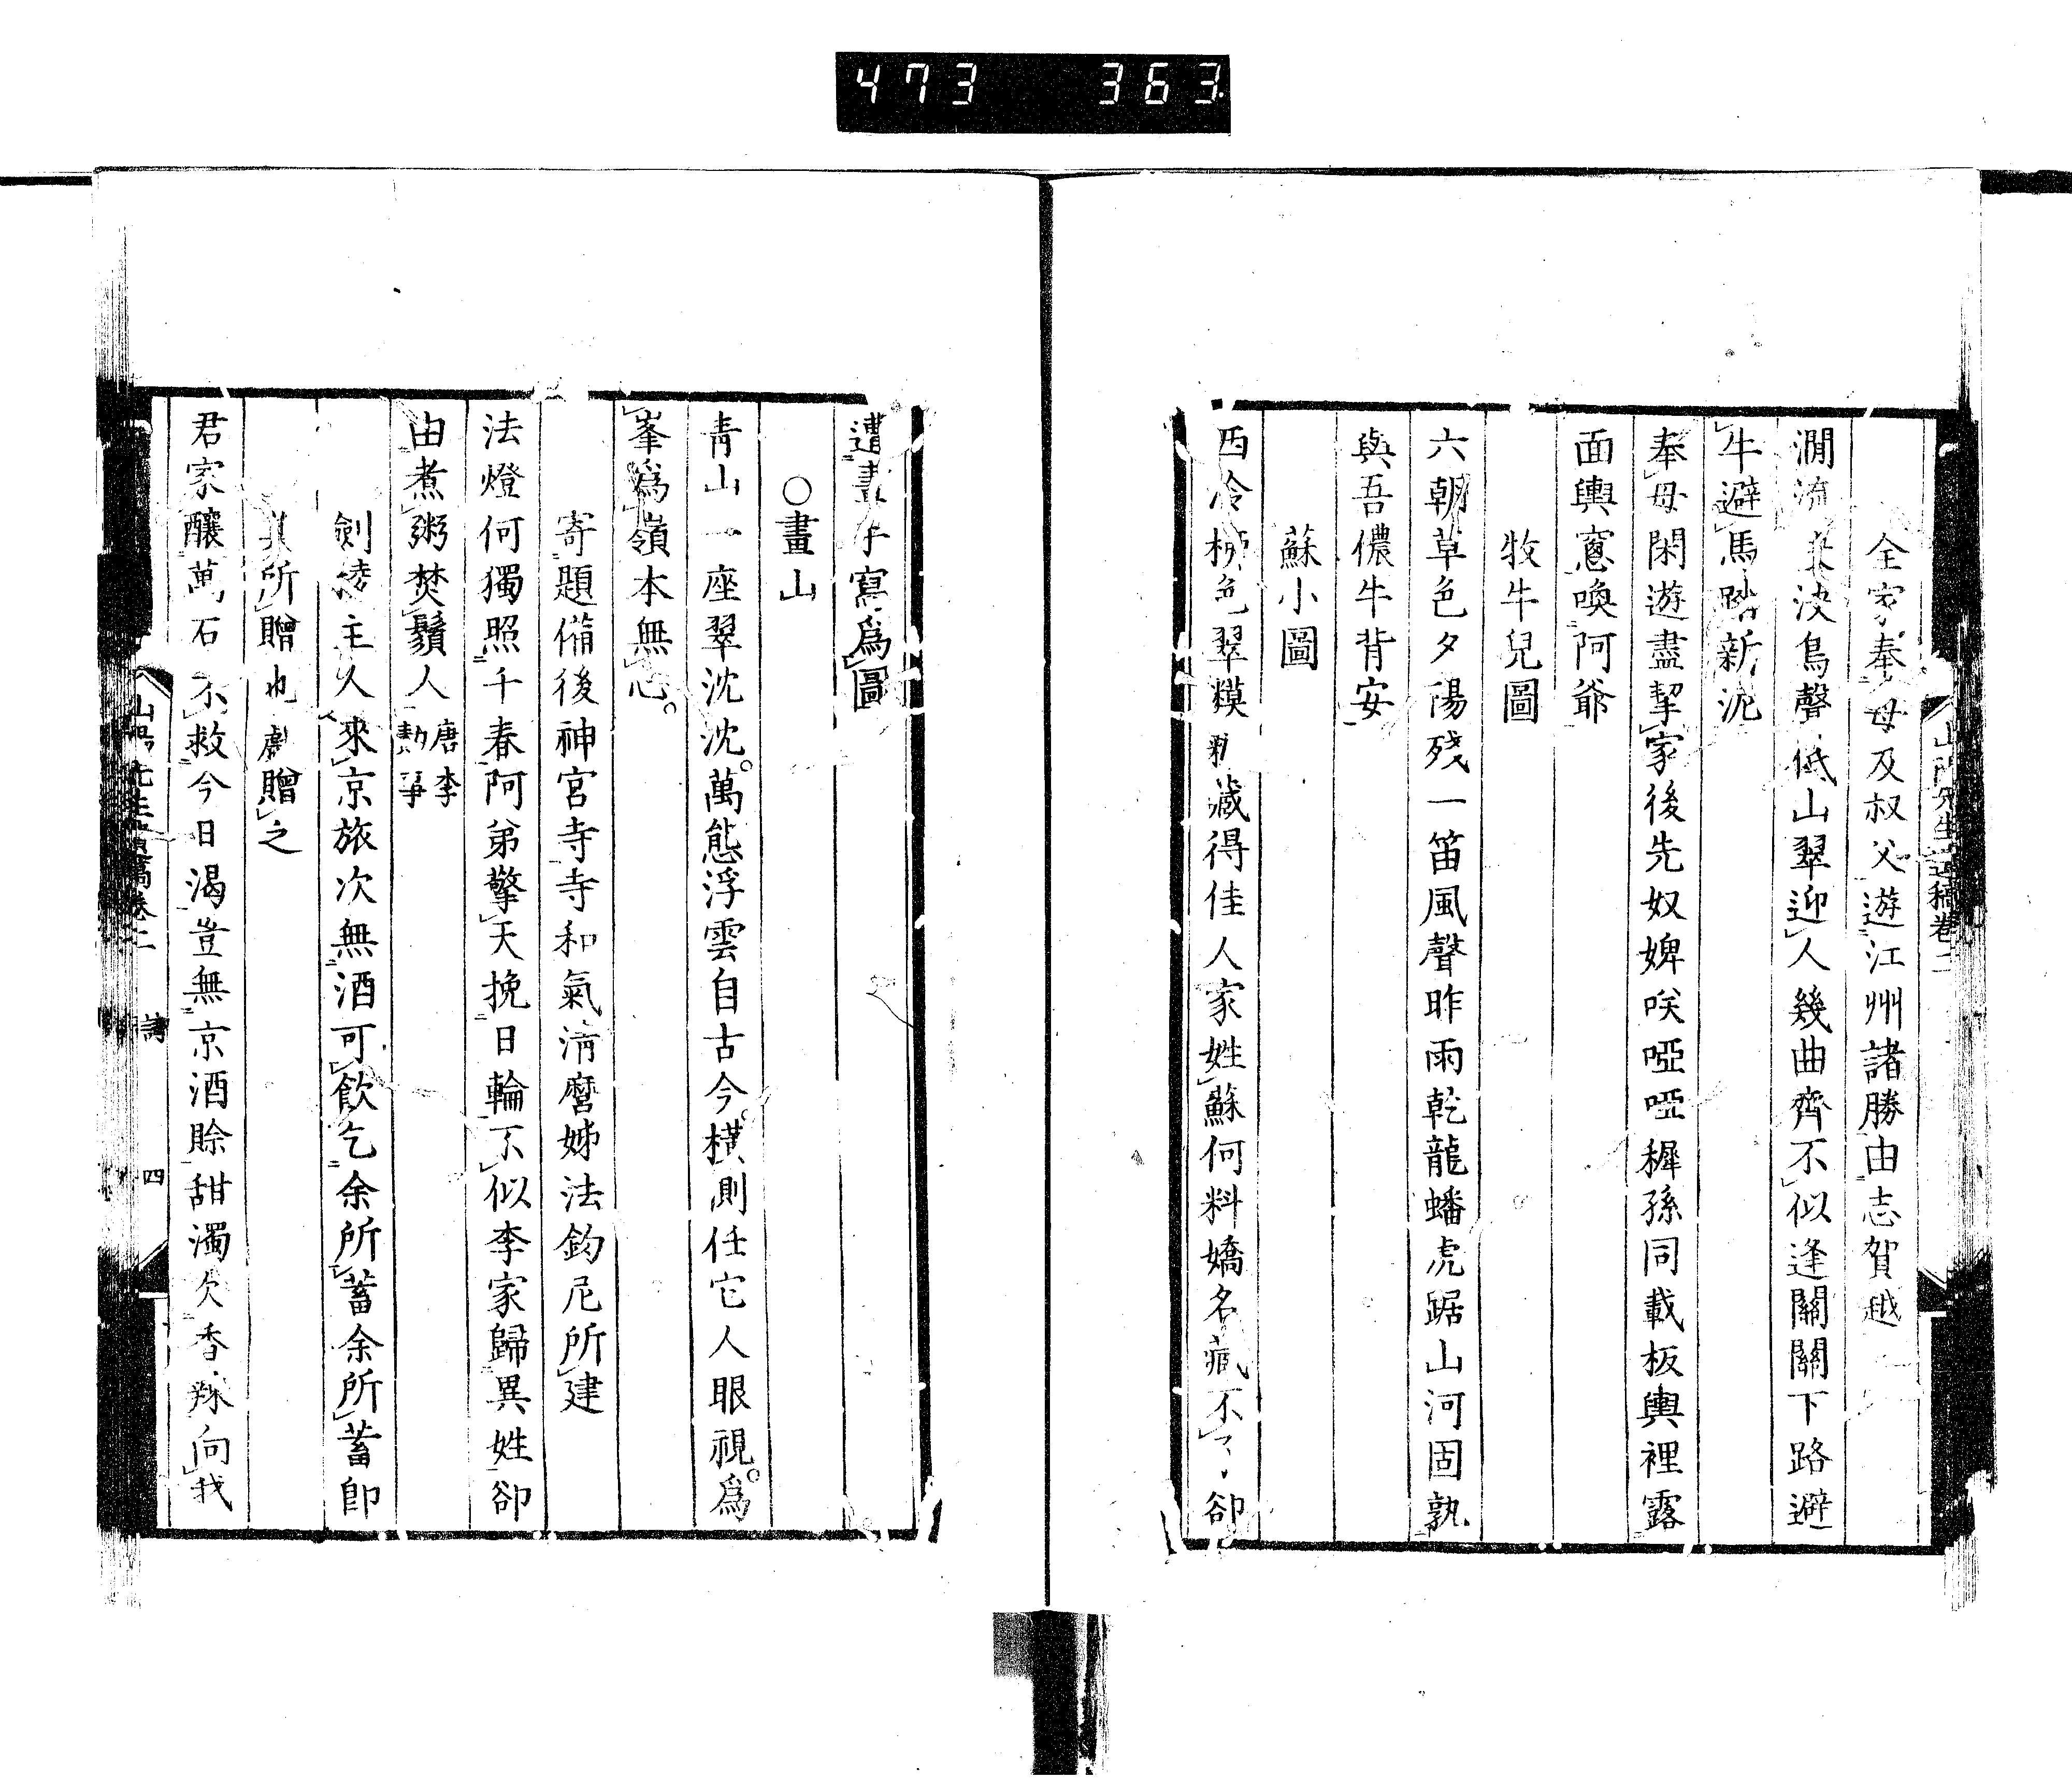 473 363
全家奉母及叔父遊江州諸勝由志賀越
澗流決鳥聲低山翠迎人幾曲齊不似逢關關下路避
牛避馬踏新泥
奉母閑遊盡挈家後先奴婢咲啞啞穉孫同載板輿裡露
面輿窻喚阿爺
牧牛兒圖
六朝草色夕陽殘一笛風聲昨雨乾龍蟠虎踞山河固孰
與吾儂牛背安
蘇小圖
西泠柳色翠糢糊藏得佳人家姓蘇何料嬌名藏不了却
遭畫手寫爲圖
○畫山
青山一座翠沈沈。萬態浮雲自古今。橫側任它人眼視。爲
峯爲嶺本無心。
寄題備後神宮寺寺和氣淸麿姊法鈞尼所建
法燈何獨照千春阿弟擎天挽日輪不似李家歸異姓卻
由煮粥焚鬚人唐李
勣事
劍菱主人來京旅次無酒可飮乞余所蓄余所蓄卽
其所贈也戲贈之
君家釀萬石不救今日渴豈無京酒賒甜濁欠香辣向我
山陽先生遺稿卷二
詩
四